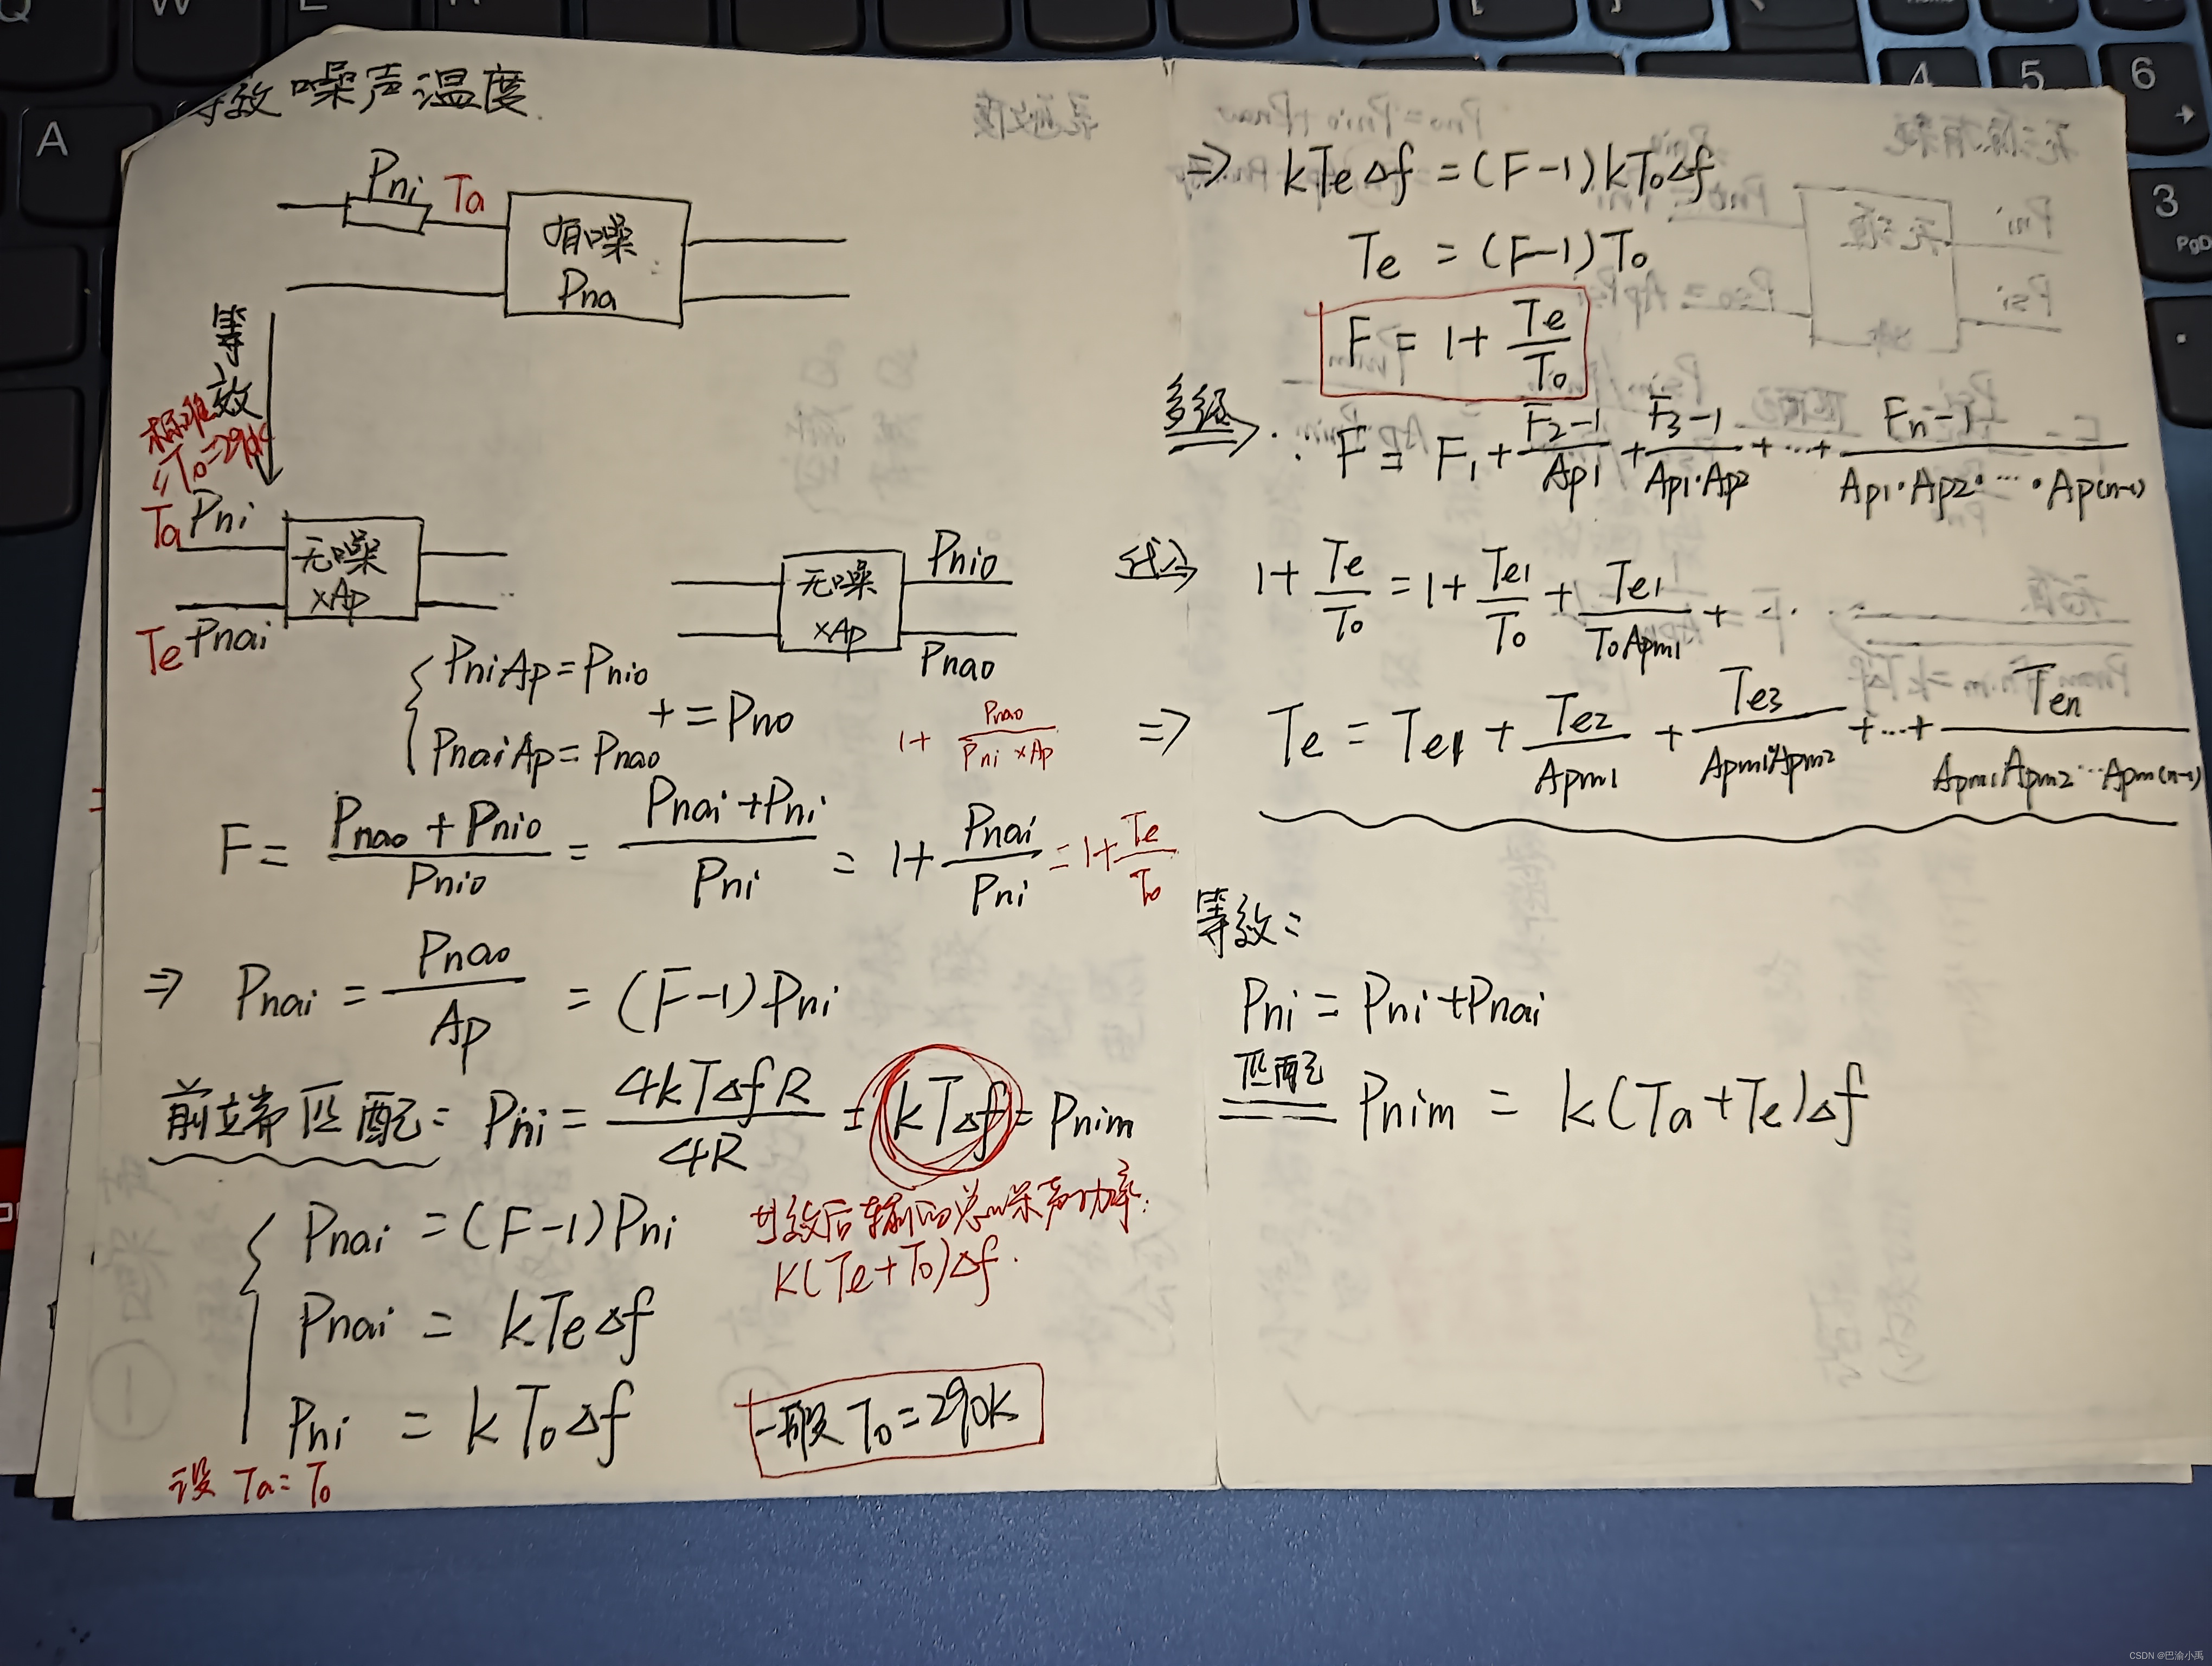 等效噪声温度
Pni Ta
有噪
Pna
等效
标准
T₀=290k
Ta Pni
无噪
×Ap
Te Pnai
无噪
×Ap
Pnio
Pnao
{ PniAp=Pnio
PnaiAp=Pnao
+ = Pno
1+ Pnao/(Pni×Ap)
F = (Pnao+Pnio)/Pnio = (Pnai+Pni)/Pni = 1+ Pnai/Pni = 1+ Te/T₀
⇒ Pnai = Pnao/Ap = (F-1)Pni
前端匹配: Pni = 4kTΔfR/4R = kTΔf = Pnim
{ Pnai = (F-1)Pni
Pnai = kTeΔf
Pni = kT₀Δf
设 Ta=T₀
等效后输入的总噪声功率:
K(Te+T₀)Δf.
一般 T₀=290K
⇒ kTeΔf = (F-1)kT₀Δf
Te = (F-1)T₀
F = 1+ Te/T₀
多级⇒: F = F₁ + (F₂-1)/Ap1 + (F₃-1)/(Ap1·Ap2) + ... + (Fn-1)/(Ap1·Ap2·...·Ap(n-1))
代入 1+ Te/T₀ = 1+ Te1/T₀ + Te1/(T₀Apm1) + ...
⇒ Te = Te1 + Te2/Apm1 + Te3/(Apm1Apm2) + ... + Ten/(Apm1Apm2...Apm(n-1))
等效:
Pni = Pni+Pnai
匹配
Pnim = k(Ta+Te)Δf
A
4
5
6
3
PgD
CSDN @巴渝小禹